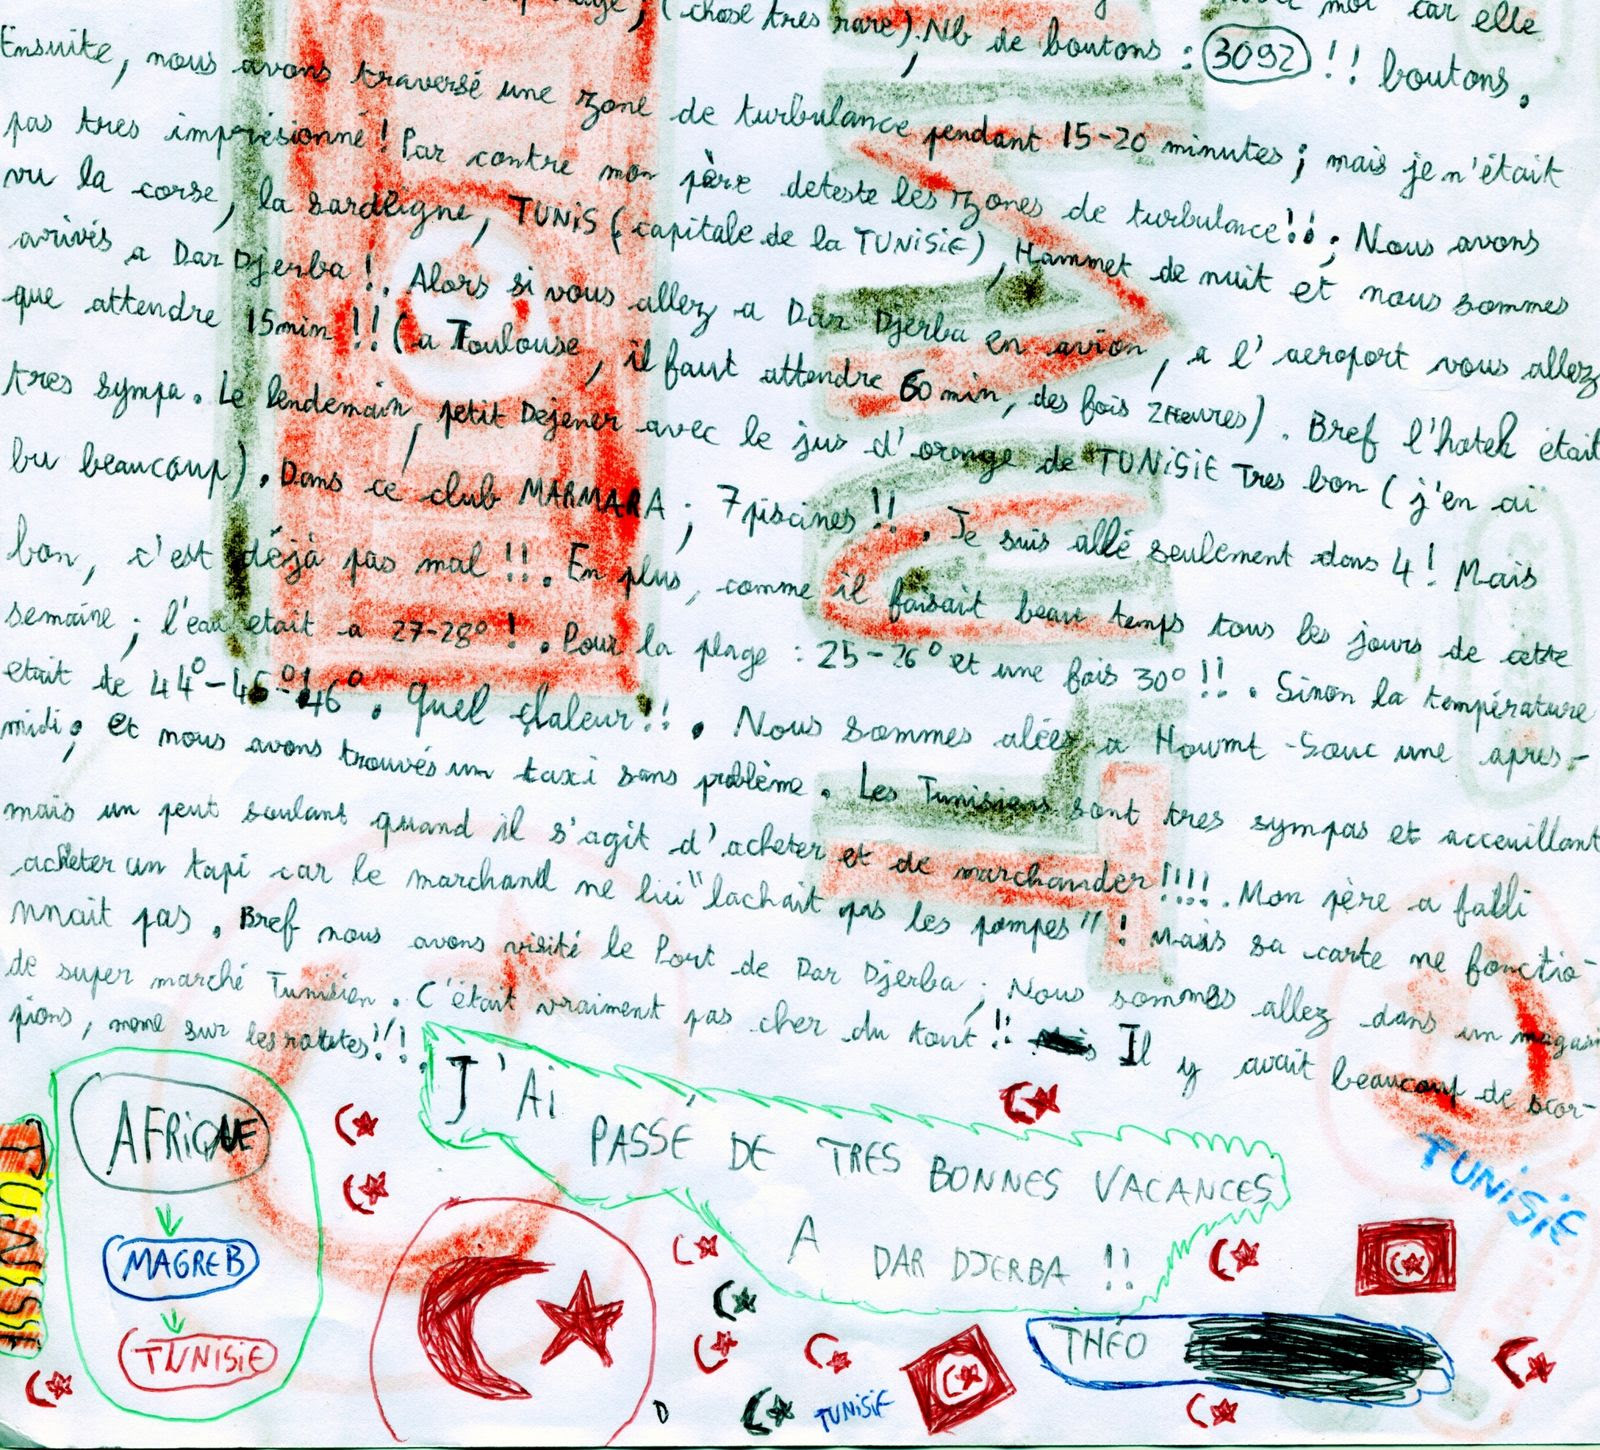 (chose tres rare). Nb de boutons : 3092 !! boutons.
moi car elle
Ensuite, nous avons traversé une zone de turbulance pendant 15-20 minutes ; mais je n'était
pas tres imprésionné ! Par contre mon père deteste les zones de turbulance !! ; Nous avons
vu la corse, la sardeigne, TUNIS (capitale de la TUNISIE), Hammet de nuit et nous sommes
arivés a Dar Djerba !. Alors si vous allez a Dar Djerba en avion, a l'aeroport vous allez
que attendre 15min !! (a Toulouse, il faut attendre 60 min, des fois 2Heures). Bref l'hotel était
tres sympa. Le lendemain, petit Dejener avec le jus d'orange de TUNISIE Tres bon (j'en ai
bu beaucoup). Dans ce club MARMARA ; 7 piscines !!. Je suis allé seulement dans 4 ! Mais
bon, c'est déjà pas mal !!. En plus, comme il faisait beau temps tous les jours de cette
semaine ; l'eau etait a 27-28° !. Pour la plage : 25-26° et une fois 30° !!. Sinon la température
etait de 44°-45°-46°. Quel chaleur !!. Nous sommes alées a Howmt-Souc une apres-
midi ; et nous avons trouvés un taxi sans problème. Les Tunisiens sont tres sympas et acceuillant
mais un peut soulant quand il s'agit d'acheter et de marchander !!!!. Mon père a falli
acheter un tapi car le marchand ne lui "lachait pas les pompes" ! Mais sa carte ne fonctio-
nnait pas. Bref nous avons visité le Port de Dar Djerba ; Nous sommes allez dans un magasin
de super marché Tunisien. C'était vraiment pas cher du tout !! Il y avait beaucoup de scor-
pions, meme sur les routes !!!.
J'Ai
PASSÉ DE TRES BONNES VACANCES
A DAR DJERBA !!
AFRIQUE
MAGREB
TUNISIE
TUNISIE
TUNISIE
THÉO
TUNISIE